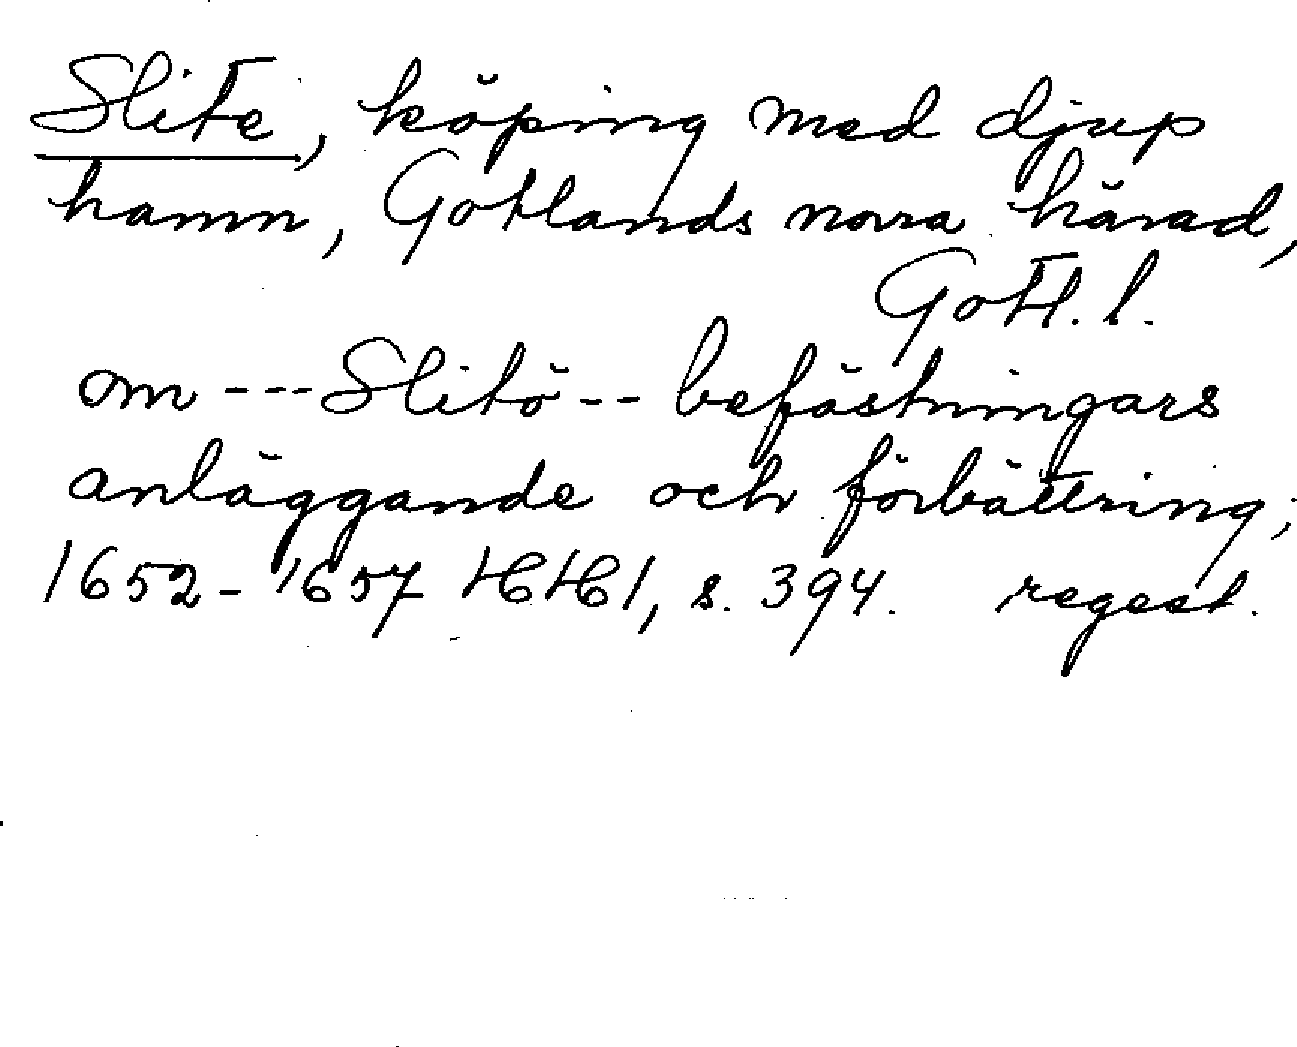 Slite, köping med djup
hamn, Gotlands norra härad,
Gotl. l.
om --- Slitö -- befästningars
anläggande och förbättring;
1652-1657 HH1, s. 394. regest.